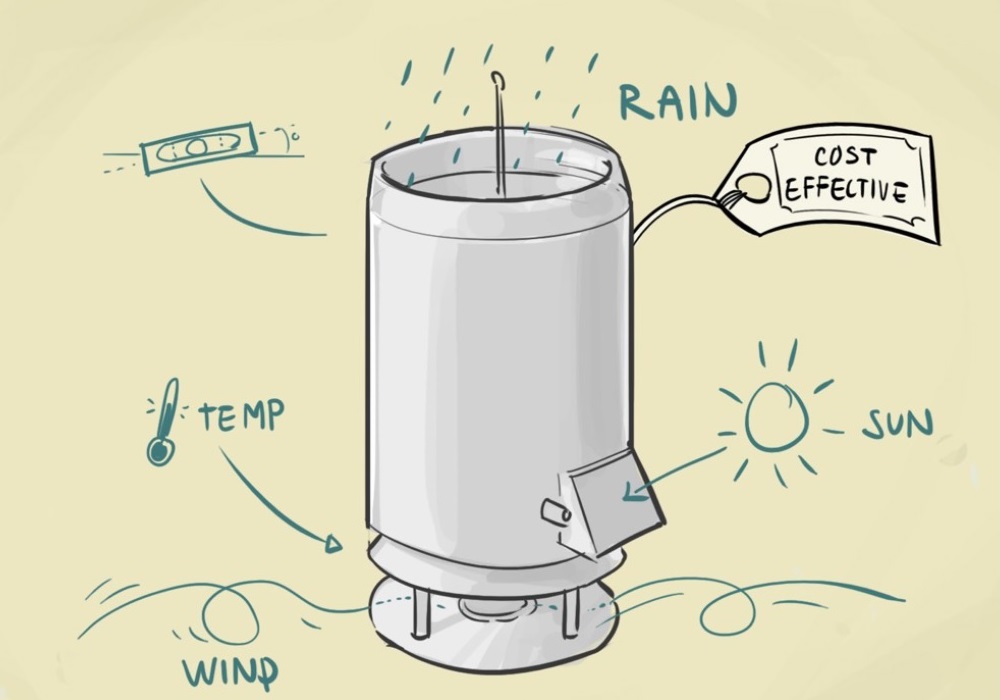 RAIN
COST
EFFECTIVE
TEMP
SUN
WIND